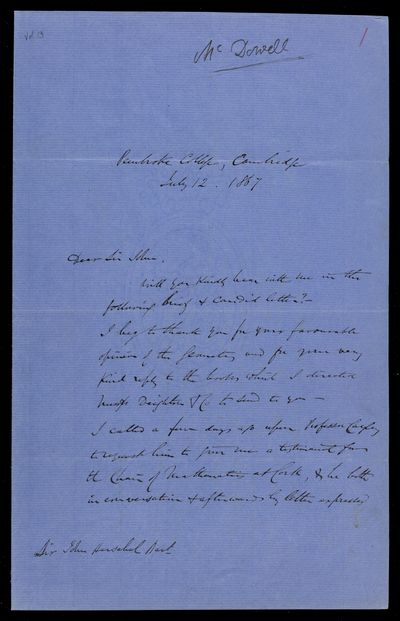 Vol 13
McDowell
1
Pembroke College, Cambridge
July 12. 1867
Dear Sir John,
Will you kindly bear with me in this
following brief & candid letter? —
I beg to thank you for your favourable
opinion of the Geometry and for your very
kind reply to the books which I directed
Messrs Deighton & Co to send to you —
I called a few days ago upon Professor Cayley
to request him to give me a testimonial for
the Chair of Mathematics at Cork, & he both
in conversation & afterwards by letter expressed
Sir John Herschel Bart